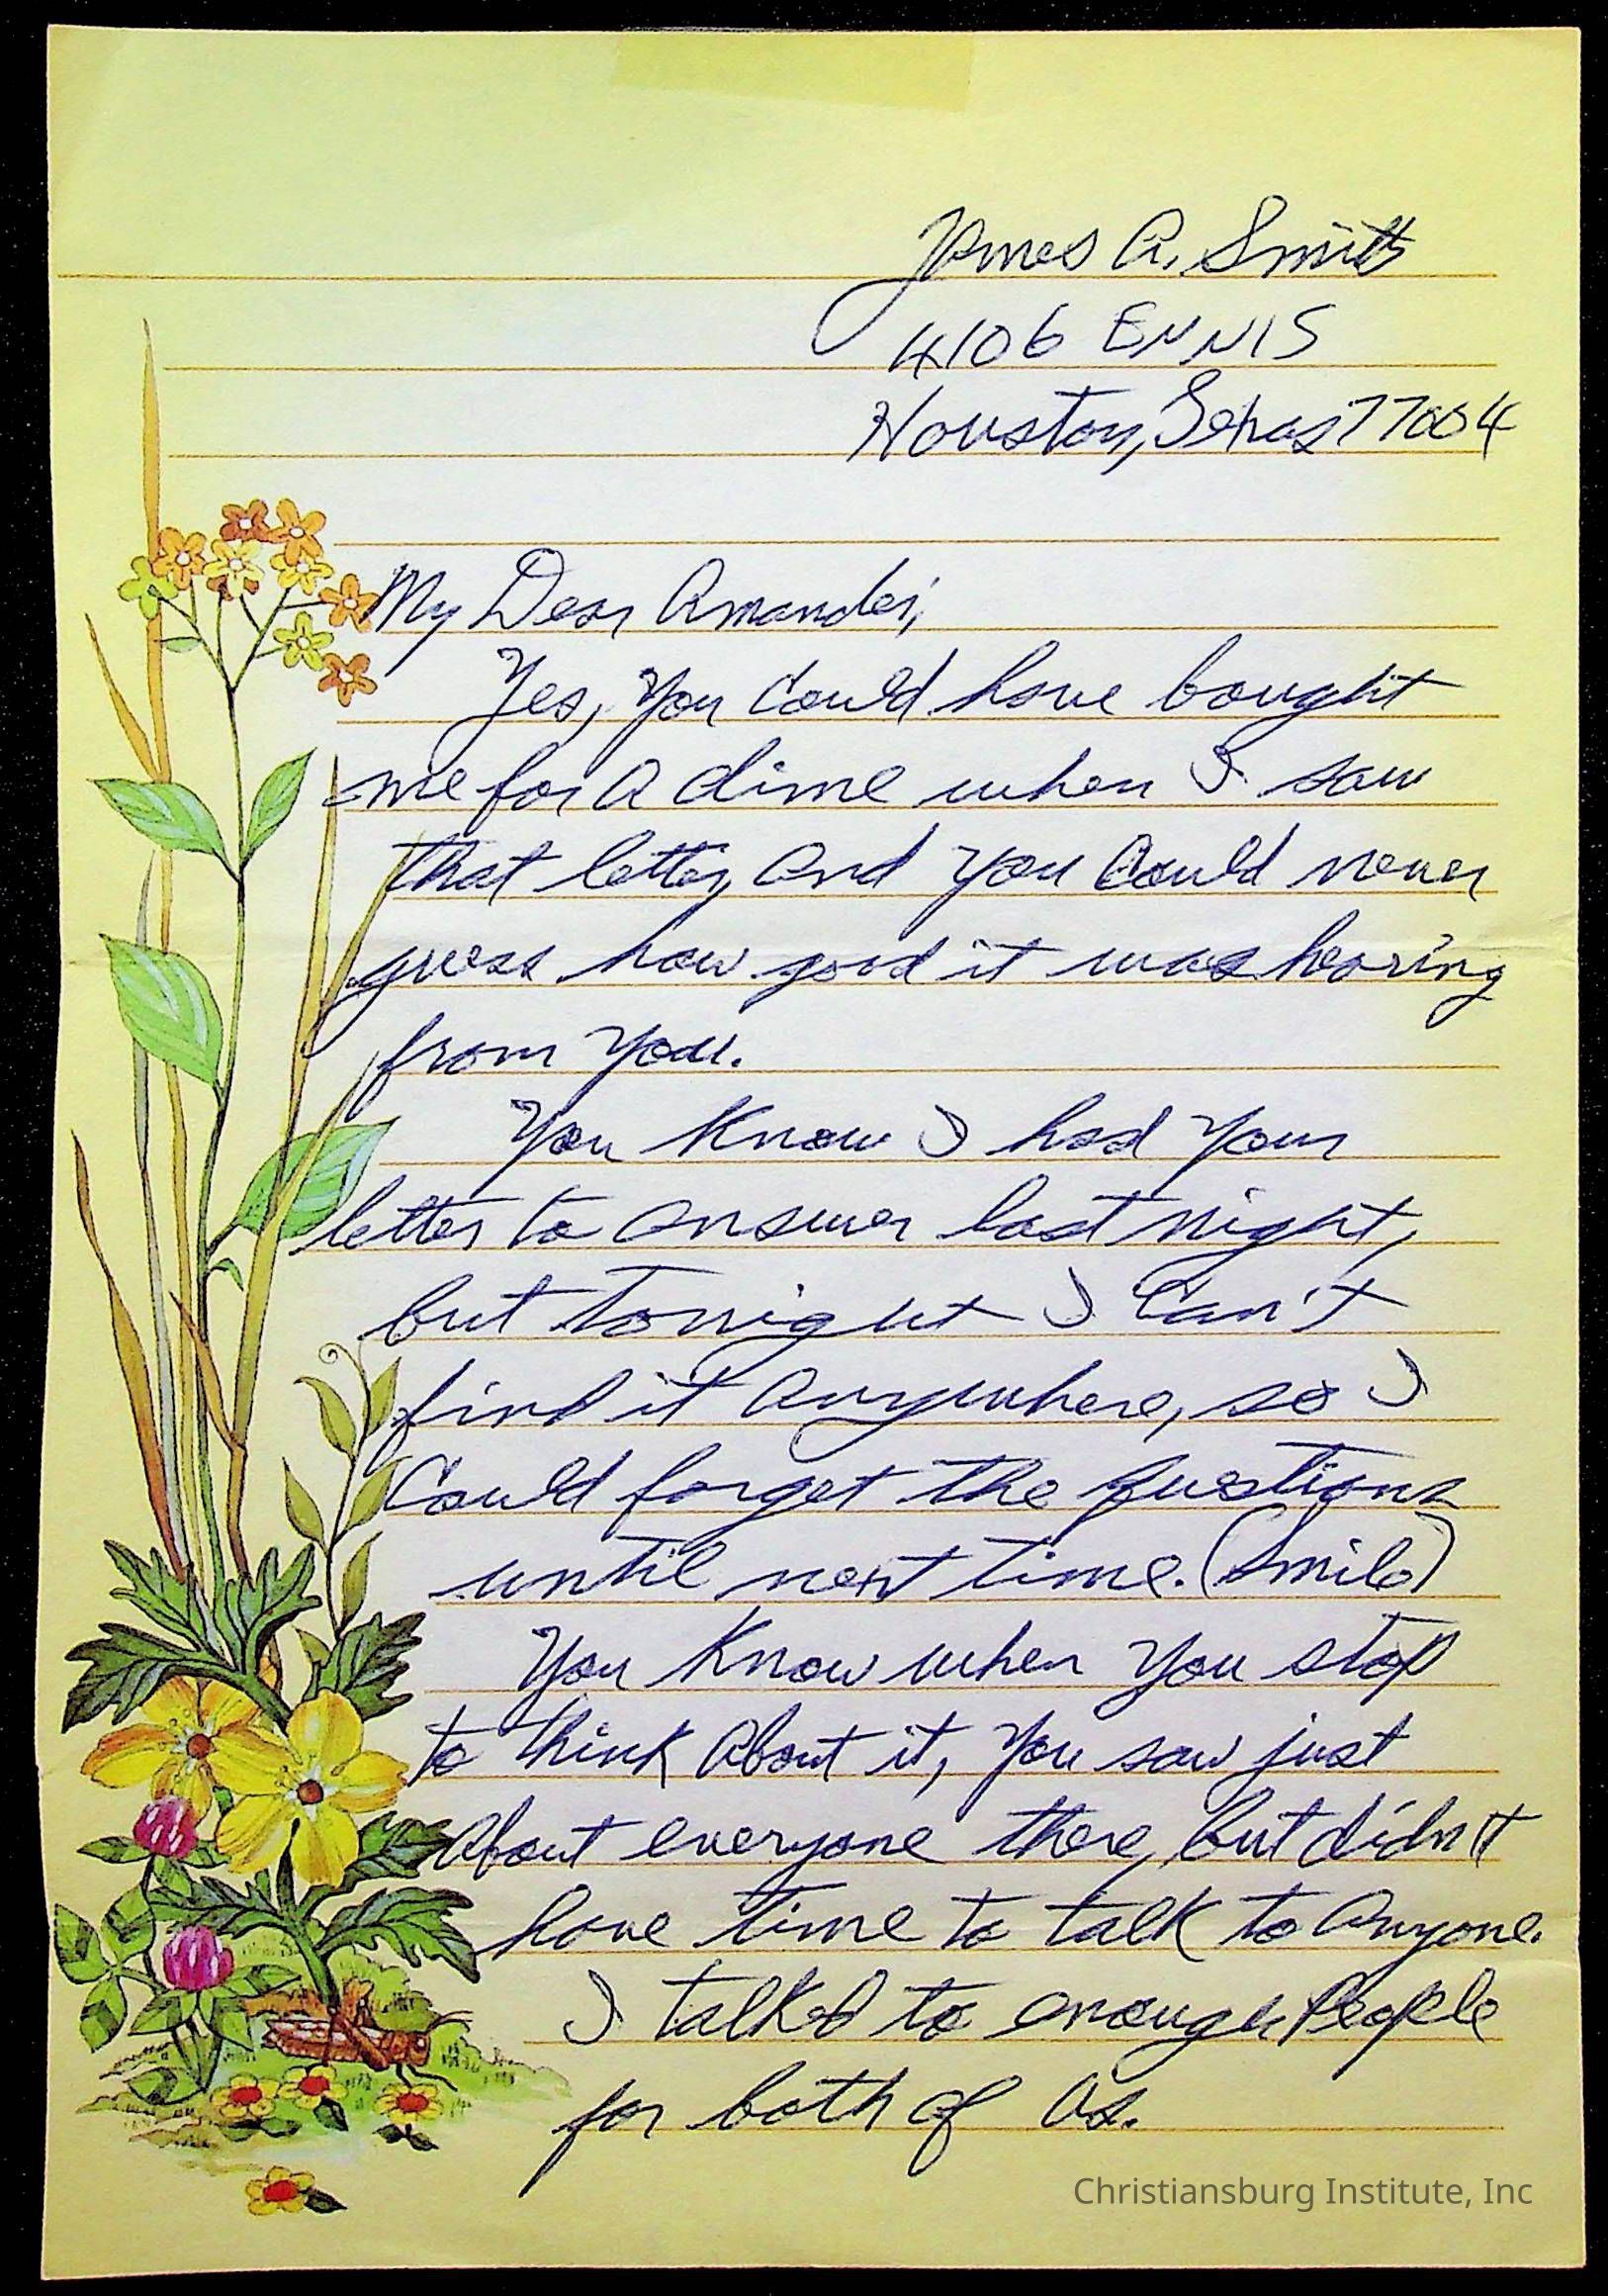 James A. Smith
4106 ENNIS
Houston, Texas 77004
My Dear Amanda,
Yes, You Could have bought
me for a dime when I saw
that letter, and you Could never
guess how good it was hearing
from you.
You Know I had Your
letter to answer last night,
but Tonight I Can't
find it anywhere, so I
Could forget the questions
until next time. (Smile)
You Know when You stop
to think About it, You saw just
About everyone there, but didn't
have time to talk to Anyone.
I talked to enough People
for both of Us.
Christiansburg Institute, Inc